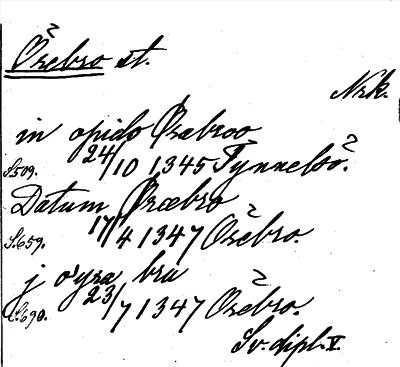 Örebro st.
Nrk.
in opido Ørœbroo
S. 509. 24/10 1345 Tynnelsö.
Datum Ørœbro
S. 659. 17/4 1347 Örebro.
j øyra bru
S. 690. 23/7 1347 Örebro.
Sv. dipl. V.